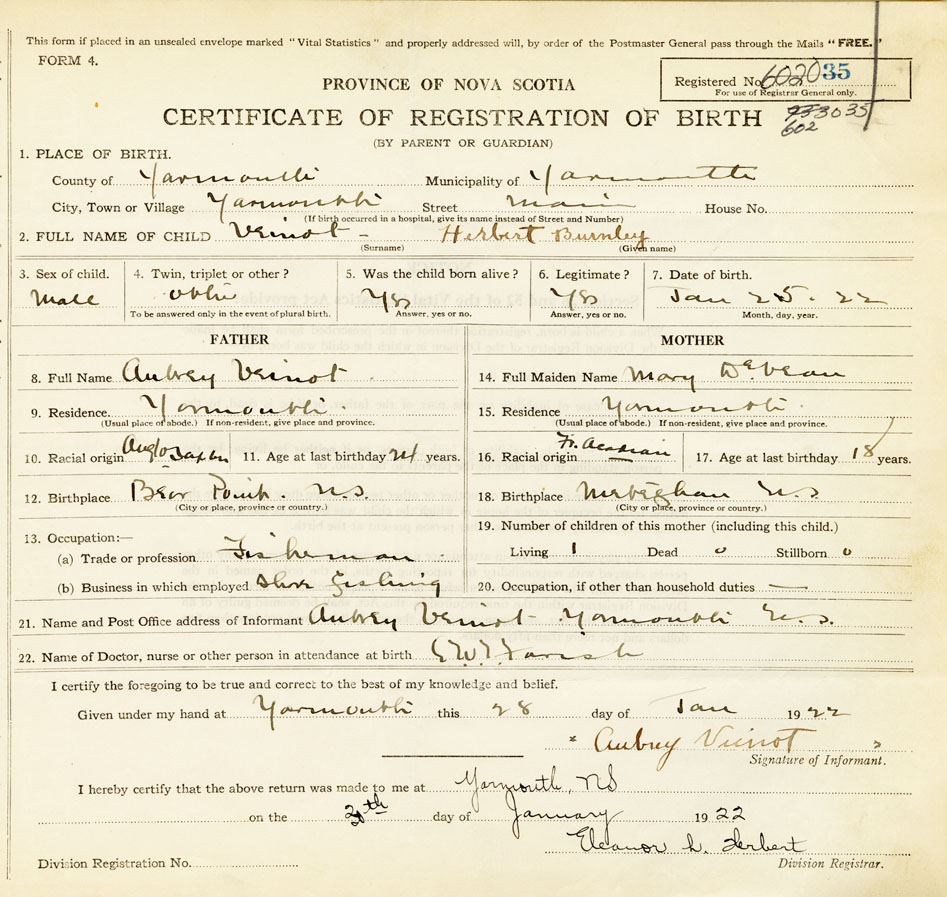 This form if placed in an unsealed envelope marked "Vital Statistics" and properly addressed will, by order of the Postmaster General pass through the Mails "FREE."
FORM 4.
Registered No. 602035
For use of Registrar General only.
PROVINCE OF NOVA SCOTIA
CERTIFICATE OF REGISTRATION OF BIRTH
3035
602
(BY PARENT OR GUARDIAN)
1. PLACE OF BIRTH.
County of Yarmouth Municipality of Yarmouth
City, Town or Village Yarmouth Street Main House No.
(If birth occurred in a hospital, give its name instead of Street and Number)
2. FULL NAME OF CHILD Veinot - Herbert Burnley
(Surname) (Given name)
3. Sex of child. 4. Twin, triplet or other? 5. Was the child born alive? 6. Legitimate? 7. Date of birth.
Male Yes Yes Jan 25. 22
To be answered only in the event of plural birth. Answer, yes or no. Answer, yes or no. Month, day, year.
FATHER MOTHER
8. Full Name Aubrey Veinot 14. Full Maiden Name Mary DeVeau
9. Residence. Yarmouth 15. Residence Yarmouth
(Usual place of abode.) If non-resident, give place and province. (Usual place of abode.) If non-resident, give place and province.
10. Racial origin Anglo Saxon 11. Age at last birthday 24 years. 16. Racial origin Fr. Acadian 17. Age at last birthday 18 years.
12. Birthplace Bear Point. N.S. 18. Birthplace Meteghan N.S
(City or place, province or country.) (City or place, province or country.)
19. Number of children of this mother (including this child.)
13. Occupation:—
(a) Trade or profession Fisherman Living 1 Dead 0 Stillborn 0
(b) Business in which employed Shore Fishing 20. Occupation, if other than household duties —
21. Name and Post Office address of Informant Aubrey Veinot Yarmouth N.S.
22. Name of Doctor, nurse or other person in attendance at birth Farish
I certify the foregoing to be true and correct to the best of my knowledge and belief.
Given under my hand at Yarmouth this 28 day of Jan 1922
" Aubrey Veinot "
Signature of Informant.
I hereby certify that the above return was made to me at Yarmouth, NS
on the day of January 1922
Eleanor L. Herbert
Division Registration No. Division Registrar.